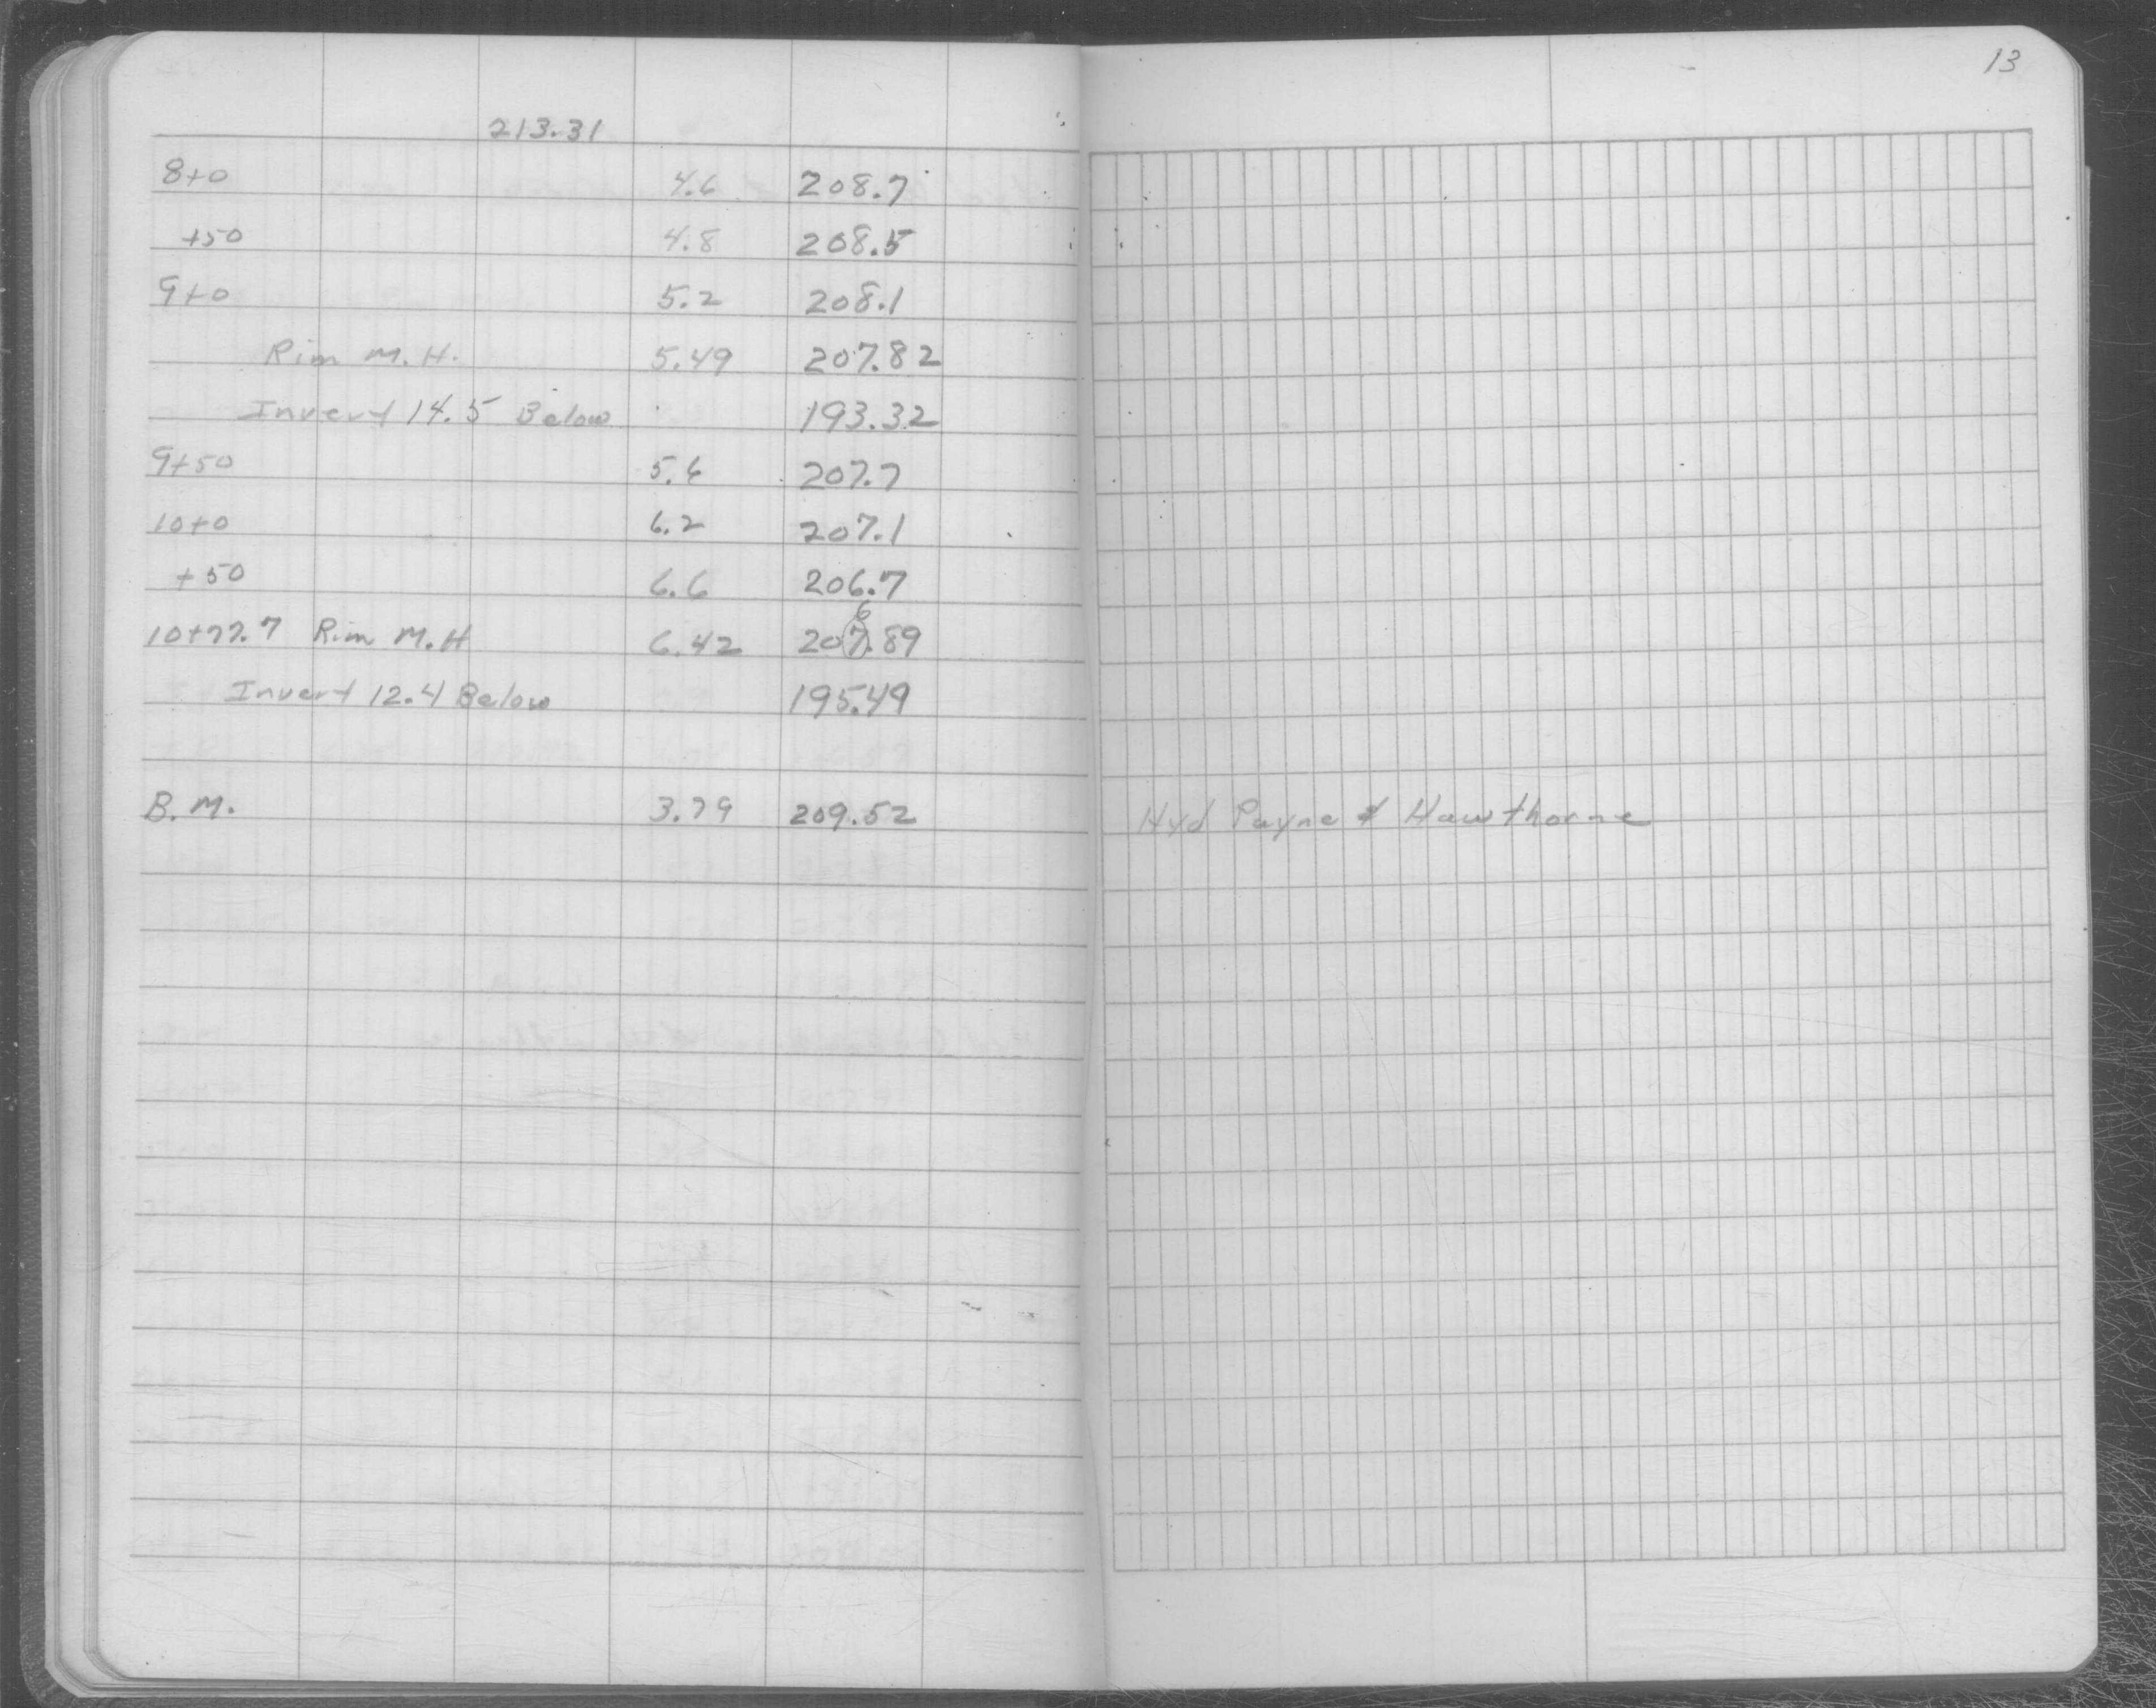 13
213.31
8+0 4.6 208.7
+50 4.8 208.5
9+0 5.2 208.1
Rim M.H. 5.49 207.82
Invert 14.5 Below 193.32
9+50 5.6 207.7
10+0 6.2 207.1
+50 6.6 206.7
6
10+77.7 Rim M.H 6.42 207.89
Invert 12.4 Below 195.49
B.M. 3.79 209.52 Hyd Payne & Hawthorne